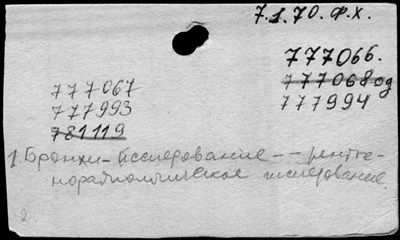 7.1.70. Ф.Х.
777066.
777067
777068од
777993
777994
781119
1 Бронхи - Исследование -- рентге-
норадиологическое исследование.
2